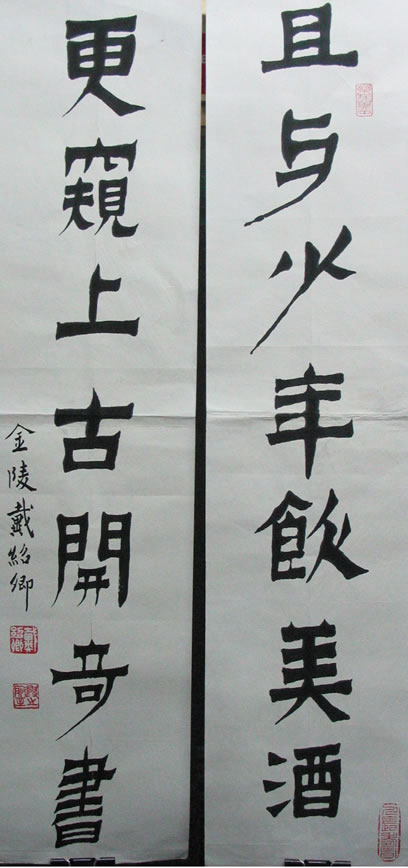 且与少年飲美酒
更窺上古開奇書
金陵戴紹卿